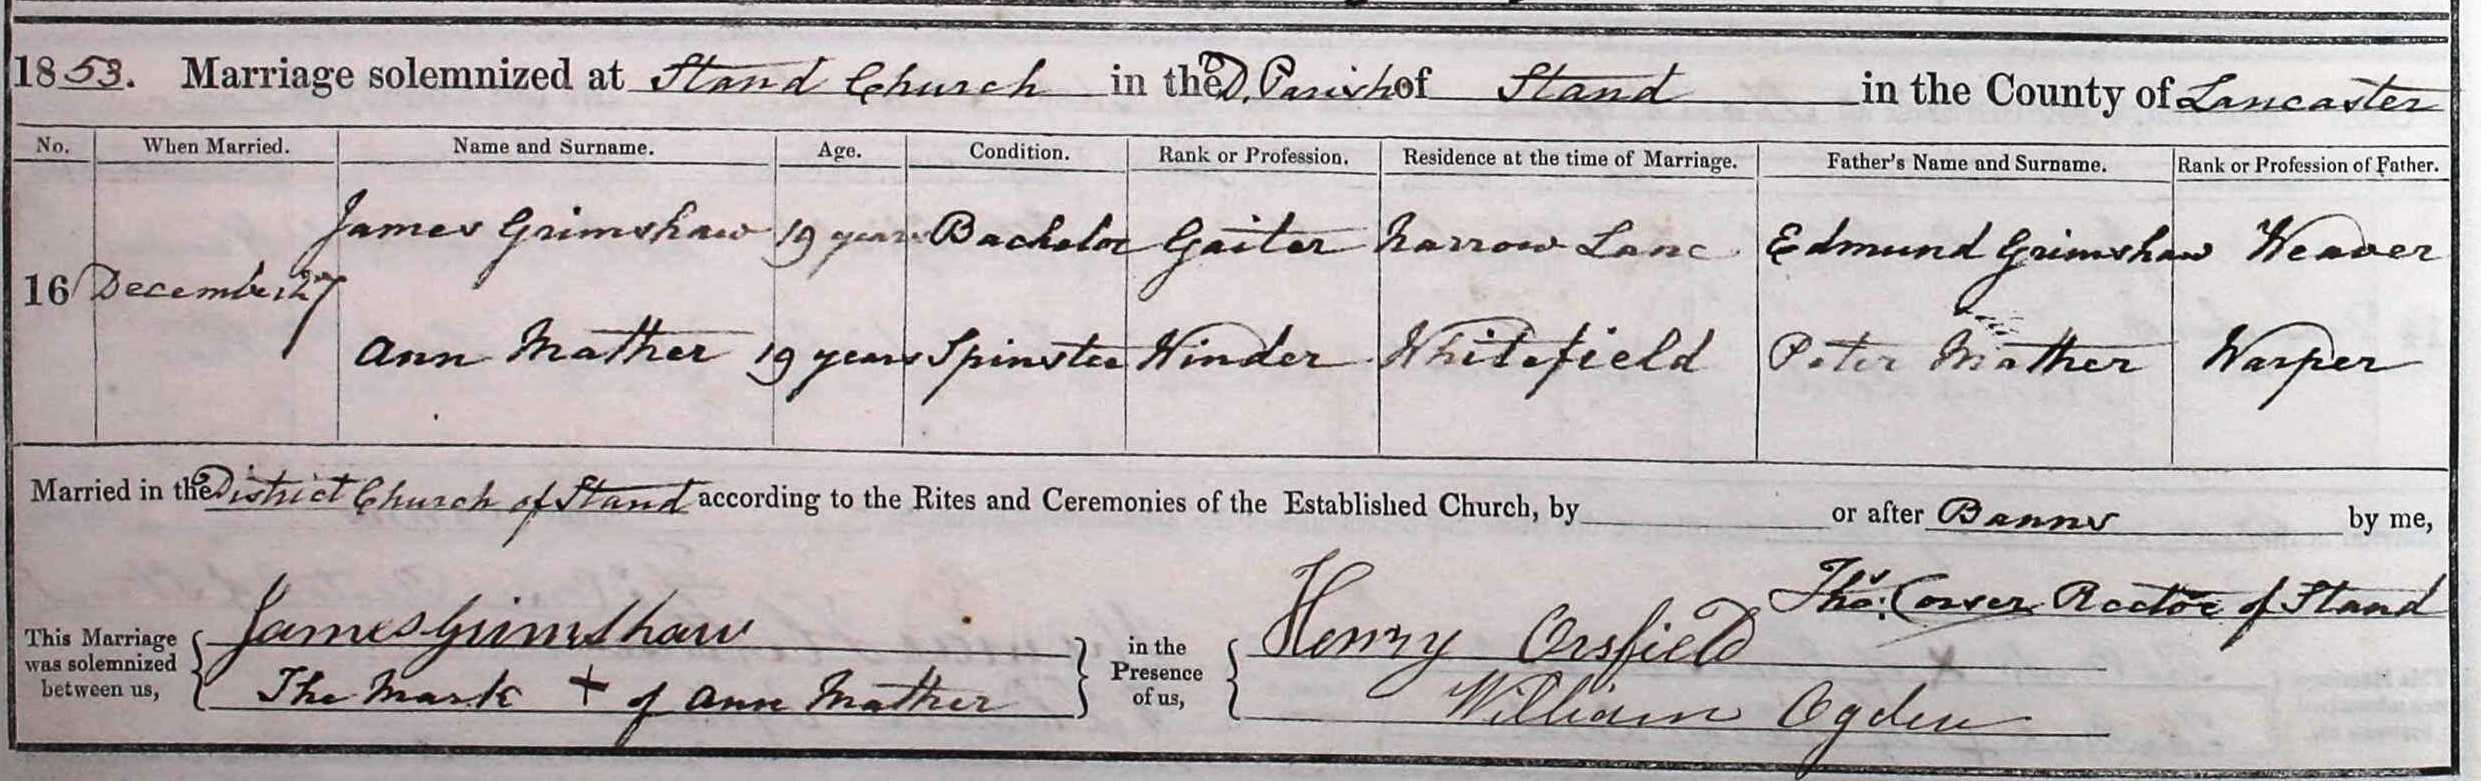 1853. Marriage solemnized at Stand Church in the D. Parish of Stand in the County of Lancaster
No. When Married. Name and Surname. Age. Condition. Rank or Profession. Residence at the time of Marriage. Father's Name and Surname. Rank or Profession of Father.
James Grimshaw 19 years Bachelor Gaiter Narrow Lane Edmund Grimshaw Weaver
16 December 27
Ann Mather 19 years Spinster Winder Whitefield Peter Mather Warper
Married in the District Church of Stand according to the Rites and Ceremonies of the Established Church, by or after Banns by me,
Thos. Corser Rector of Stand
This Marriage was solemnized between us, James Grimshaw in the Presence of us, Henry Orsfield
The Mark + of Ann Mather William Ogden